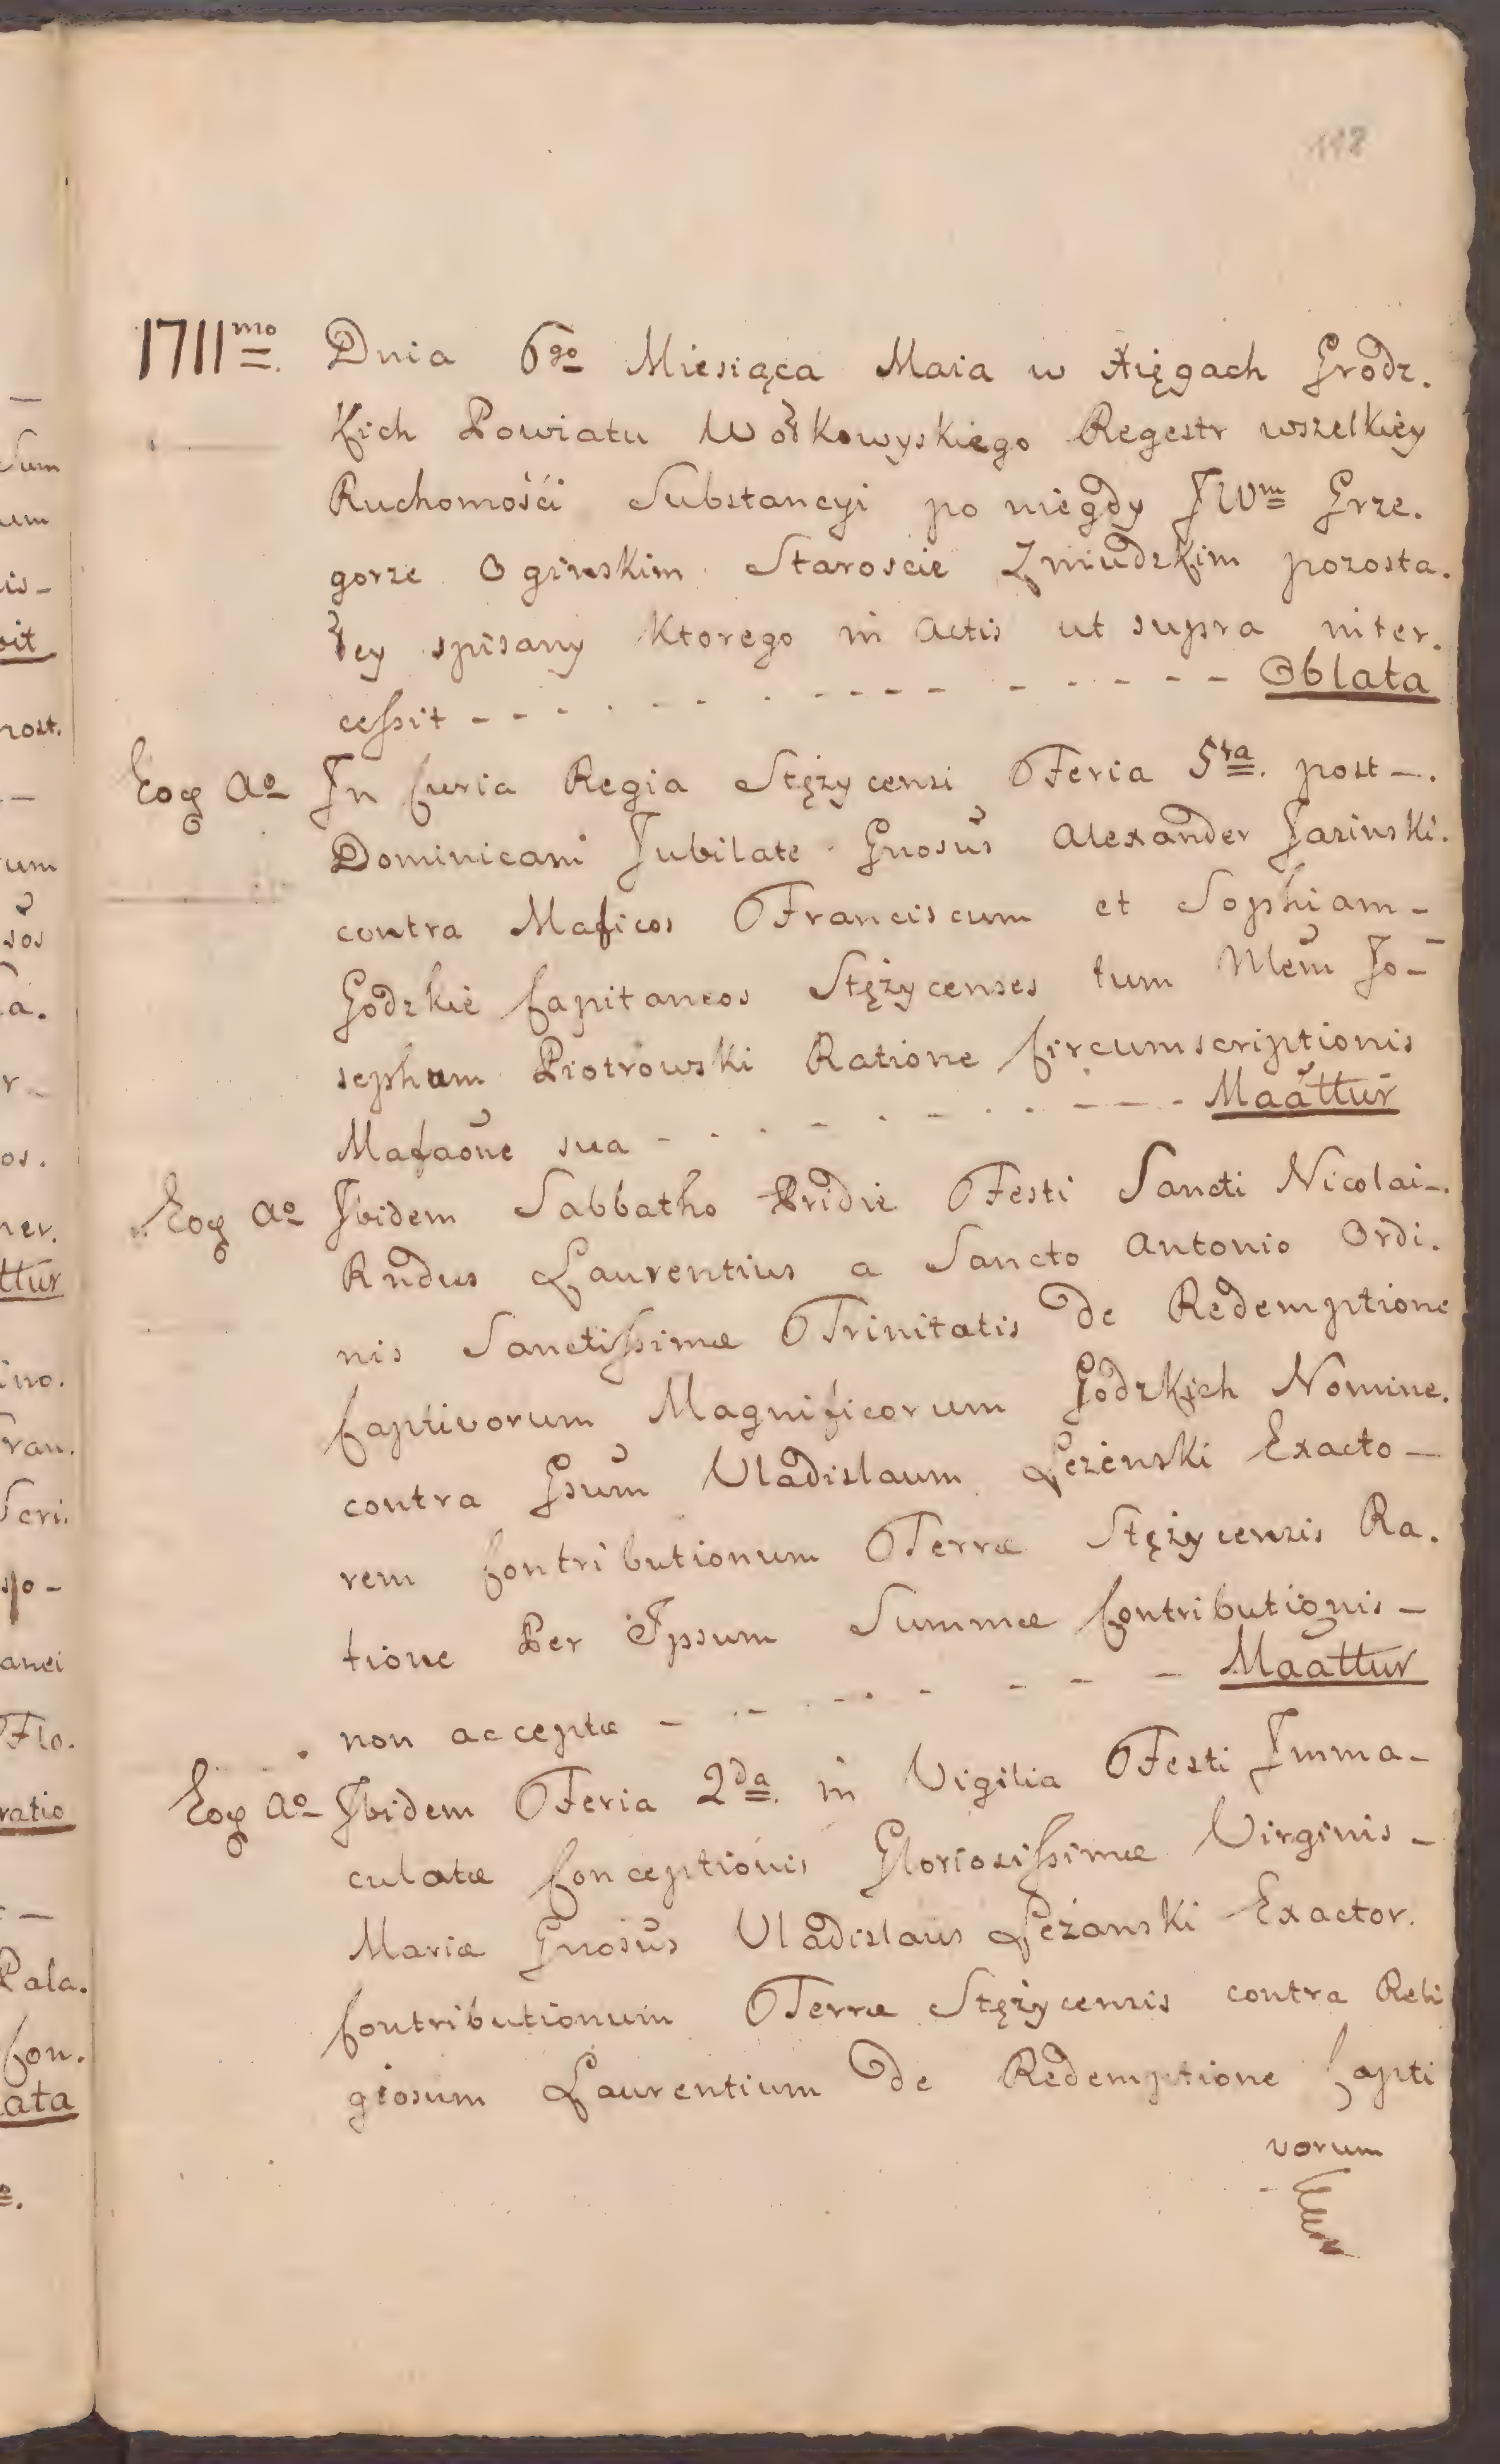 118
1711mo Dnia 6go Miesiąca Maia w Xięgach Grodz.
kich Powiatu Wołkowyskiego Regestr wszelkiey
Ruchomośći Substancyi po niegdy JWm Grze.
gorze Oginskim Staroscie Zmudzkim pozosta.
łey spisany ktorego in Actis ut supra inter.
cessit - - - - - - - - - - - - - Oblata
Eoq Ao In Curia Regia Stężycensi Feria 5ta. post -.
Dominicam Jubilate Gnosus Alexander Jasinski.
contra Maficos Franciscum et Sophiam -
Godzkie Capitaneos Stężycenses tum Mem Jo-
sephum Piotrowski Ratione Circumscriptionis
Mafaone sua - - - - - - - - - - Maattur
Eoq Ao Ibidem Sabbatho Pridie Festi Sancti Nicolai -.
Rndus Laurentius a Sancto Antonio Ordi.
nis Sanctissimæ Trinitatis de Redemptione
Captivorum Magnificorum Godzkich Nomine.
contra Gsum Vladislaum Leżenski Exacto -
rem Contributionum Terræ Stężycensis Ra.
tione Per Ipsum Summæ Contributionis -
non acceptæ - - - - - - - - Maattur
Eoq Ao Ibidem Feria 2da. in Vigilia Festi Imma -
culatæ Conceptionis Gloriosissimæ Virginis -
Mariæ Gnosus Vladislaus Leżanski Exactor.
Contributionum Terræ Stężycensis contra Reli
giosum Laurentium de Redemptione Capti
vorum